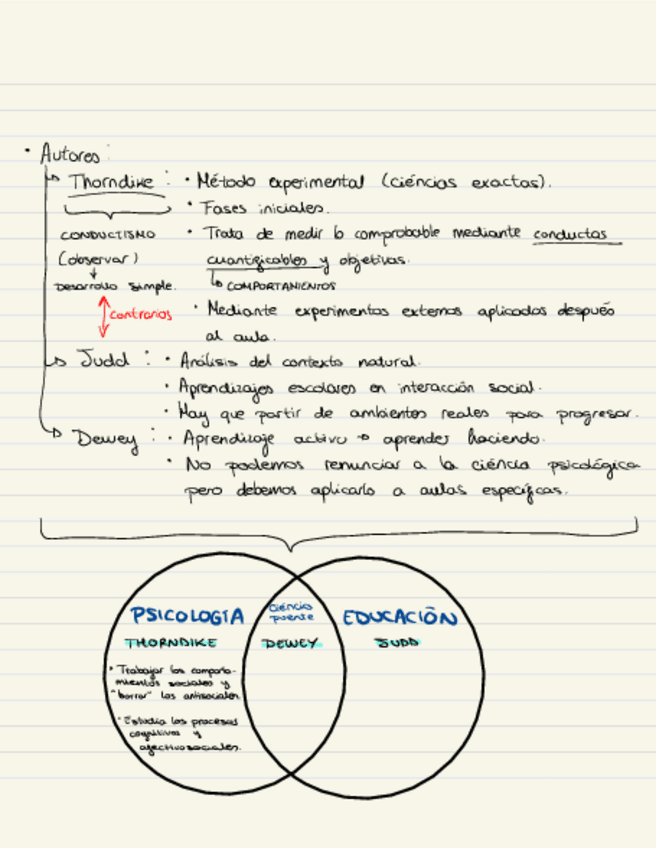 • Autores:
↳ Thorndike : • Método experimental (ciéncias exactas).
• Fases iniciales.
CONDUCTISMO • Trata de medir lo comprobable mediante conductas
(observar) cuantificables y objetivas.
↓
Desarrollo simple. ↳ COMPORTAMIENTOS
contrarios • Mediante experimentos externos aplicados después
al aula.
↳ Judd : • Análisis del contexto natural.
• Aprendizajes escolares en interacción social.
• Hay que partir de ambientes reales para progresar.
↳ Dewey : • Aprendizaje activo → aprender haciendo.
• No podemos renunciar a la ciéncia psicológica
pero debemos aplicarlo a aulas específicas.
PSICOLOGÍA
THORNDIKE
• Trabajar los comporta-
mientos sociales y
"borrar" los antisociales.
• Estudia los procesos
cognitivos y
afectivosociales.
Ciéncia
puente
DEWEY
EDUCACIÓN
JUDD